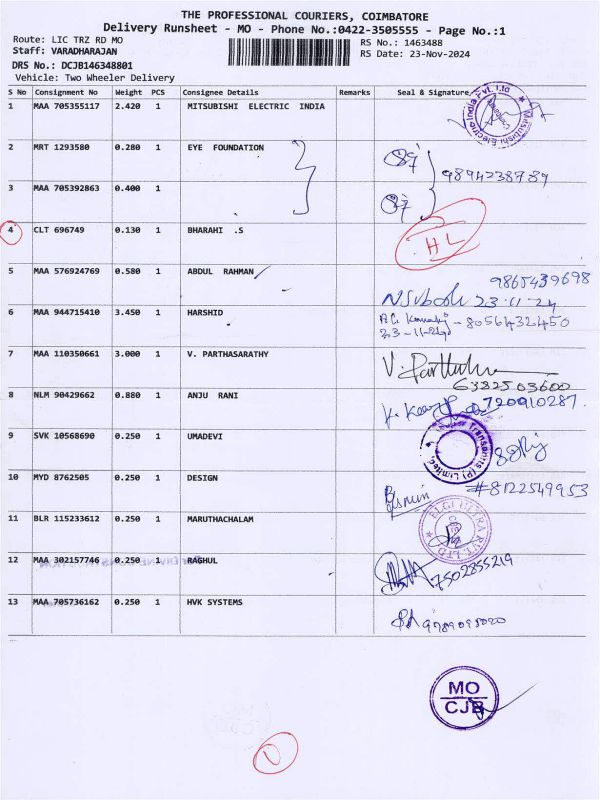 THE PROFESSIONAL COURIERS, COIMBATORE
Delivery Runsheet - MO - Phone No.:0422-3505555 - Page No.:1
Route: LIC TRZ RD MO
RS No.: 1463488
Staff: VARADHARAJAN
RS Date: 23-Nov-2024
DRS No.: DCJB146348801
Vehicle: Two Wheeler Delivery
S No Consignment No Weight PCS Consignee Details Remarks Seal & Signature
1 MAA 705355117 2.420 1 MITSUBISHI ELECTRIC INDIA
Mitsubishi Electric India Pvt. Ltd
2 MRT 1293580 0.280 1 EYE FOUNDATION
9894238789
3 MAA 705392863 0.400 1
4 CLT 696749 0.130 1 BHARAHI .S
HL
5 MAA 576924769 0.580 1 ABDUL RAHMAN
9865439698
23-11-24
6 MAA 944715410 3.450 1 HARSHID
23-11-24 - 8056432450
7 MAA 110350661 3.000 1 V. PARTHASARATHY
6382503600
8 NLM 90429662 0.880 1 ANJU RANI
720910287.
9 SVK 10568690 0.250 1 UMADEVI
10 MYD 8762505 0.250 1 DESIGN
#8122549953
11 BLR 115233612 0.250 1 MARUTHACHALAM
ELGI ULTRA PVT. LTD
12 MAA 302157746 0.250 1 RAGHUL
7502855219
13 MAA 705736162 0.250 1 HVK SYSTEMS
9789095020
MO
CJB